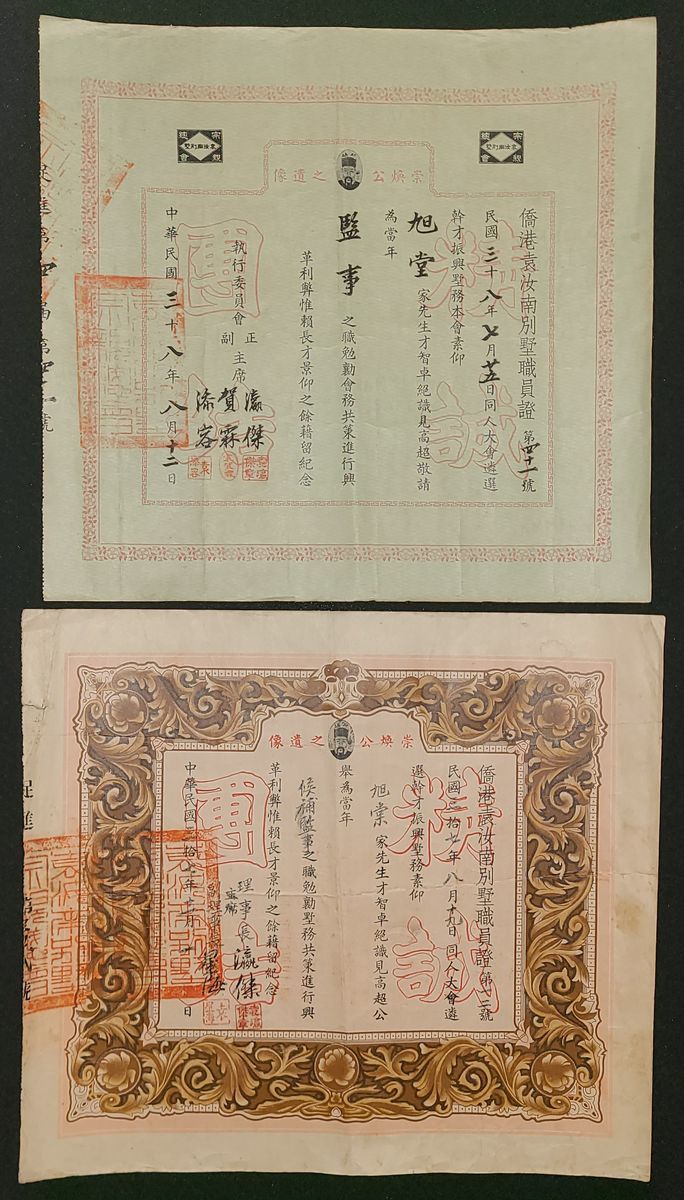 宗親總會
袁汝南別墅
宗親總會
袁汝南別墅
崇煥公之遺像
僑港袁汝南別墅職員證 第四十一號
民國三十八年七月廿五日同人大會遴選
幹才振興墅務本會素仰
旭堂家先生才智卓絕識見高超敬請
為當年
監事之職勉勷會務共策進行興
革利弊惟賴長才景仰之餘藉留紀念
執行委員會正副主席 瀛傑 賀霖 添容
中華民國三十八年八月十二日
精誠團
崇煥公之遺像
僑港袁汝南別墅職員證 第 號
民國三拾七年八月十九日同人大會遴
選幹才振興墅務素仰
旭棠家先生才智卓絕識見高超公
舉為當年
候補監事之職勉勷墅務共策進行興
革利弊惟賴長才景仰之餘藉留紀念
理事長 瀛傑
中華民國三拾七年 月 日
精誠團